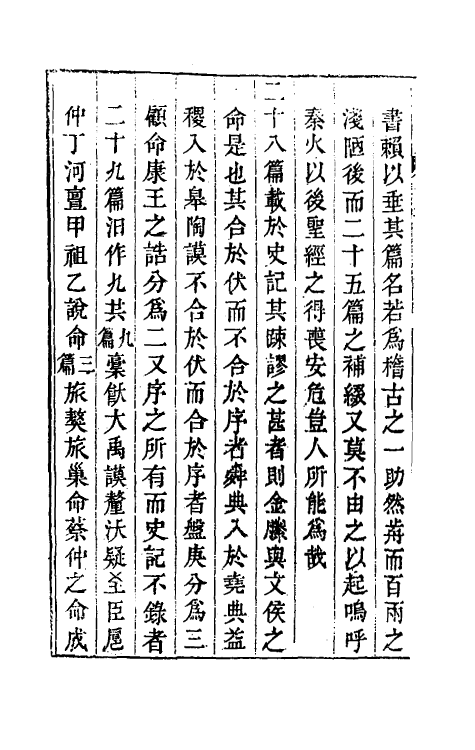 書賴以垂其篇名若爲稽古之一助然前而百兩之
淺陋後而二十五篇之補綴又莫不由之以起嗚呼
秦火以後聖經之得喪安危豈人所能爲哉
二十八篇載於史記其踈謬之甚者則金縢與文侯之
命是也其合於伏而不合於序者舜典入於堯典益
稷入於皋陶謨不合於伏而合於序者盤庚分爲三
顧命康王之誥分爲二又序之所有而史記不錄者
二十九篇汨作九共九篇槀飫大禹謨釐沃疑至臣扈
仲丁河亶甲祖乙說命三篇旅獒旅巢命蔡仲之命成